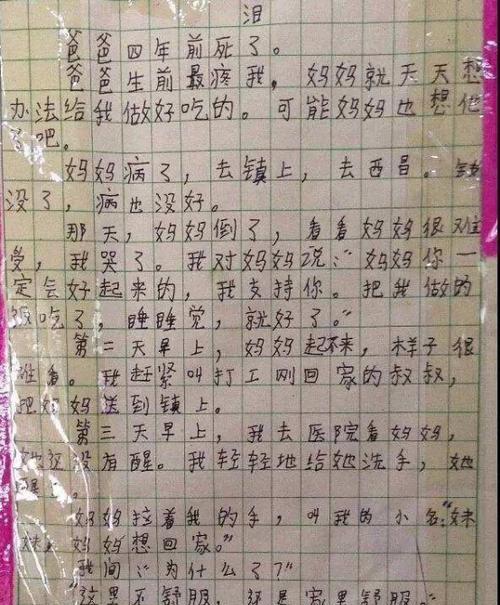 泪
爸爸四年前死了。
爸爸生前最疼我，妈妈就天天想
办法给我做好吃的。可能妈妈也想他
了吧。
妈妈病了，去镇上，去西昌。钱
没了，病也没好。
那天，妈妈倒了，看看妈妈很难
受，我哭了。我对妈妈说：“妈妈你一
定会好起来的，我支持你。把我做的
饭吃了，睡睡觉，就好了。”
第二天早上，妈妈起不来，样子很
难看。我赶紧叫打工刚回家的叔叔，
把妈妈送到镇上。
第三天早上，我去医院看妈妈，
她还没有醒。我轻轻地给她洗手，她
醒了。
妈妈拉着我的手，叫我的小名：“妹
妹，妈妈想回家。”
我问：“为什么了？”
“这里不舒服，还是家里舒服。”